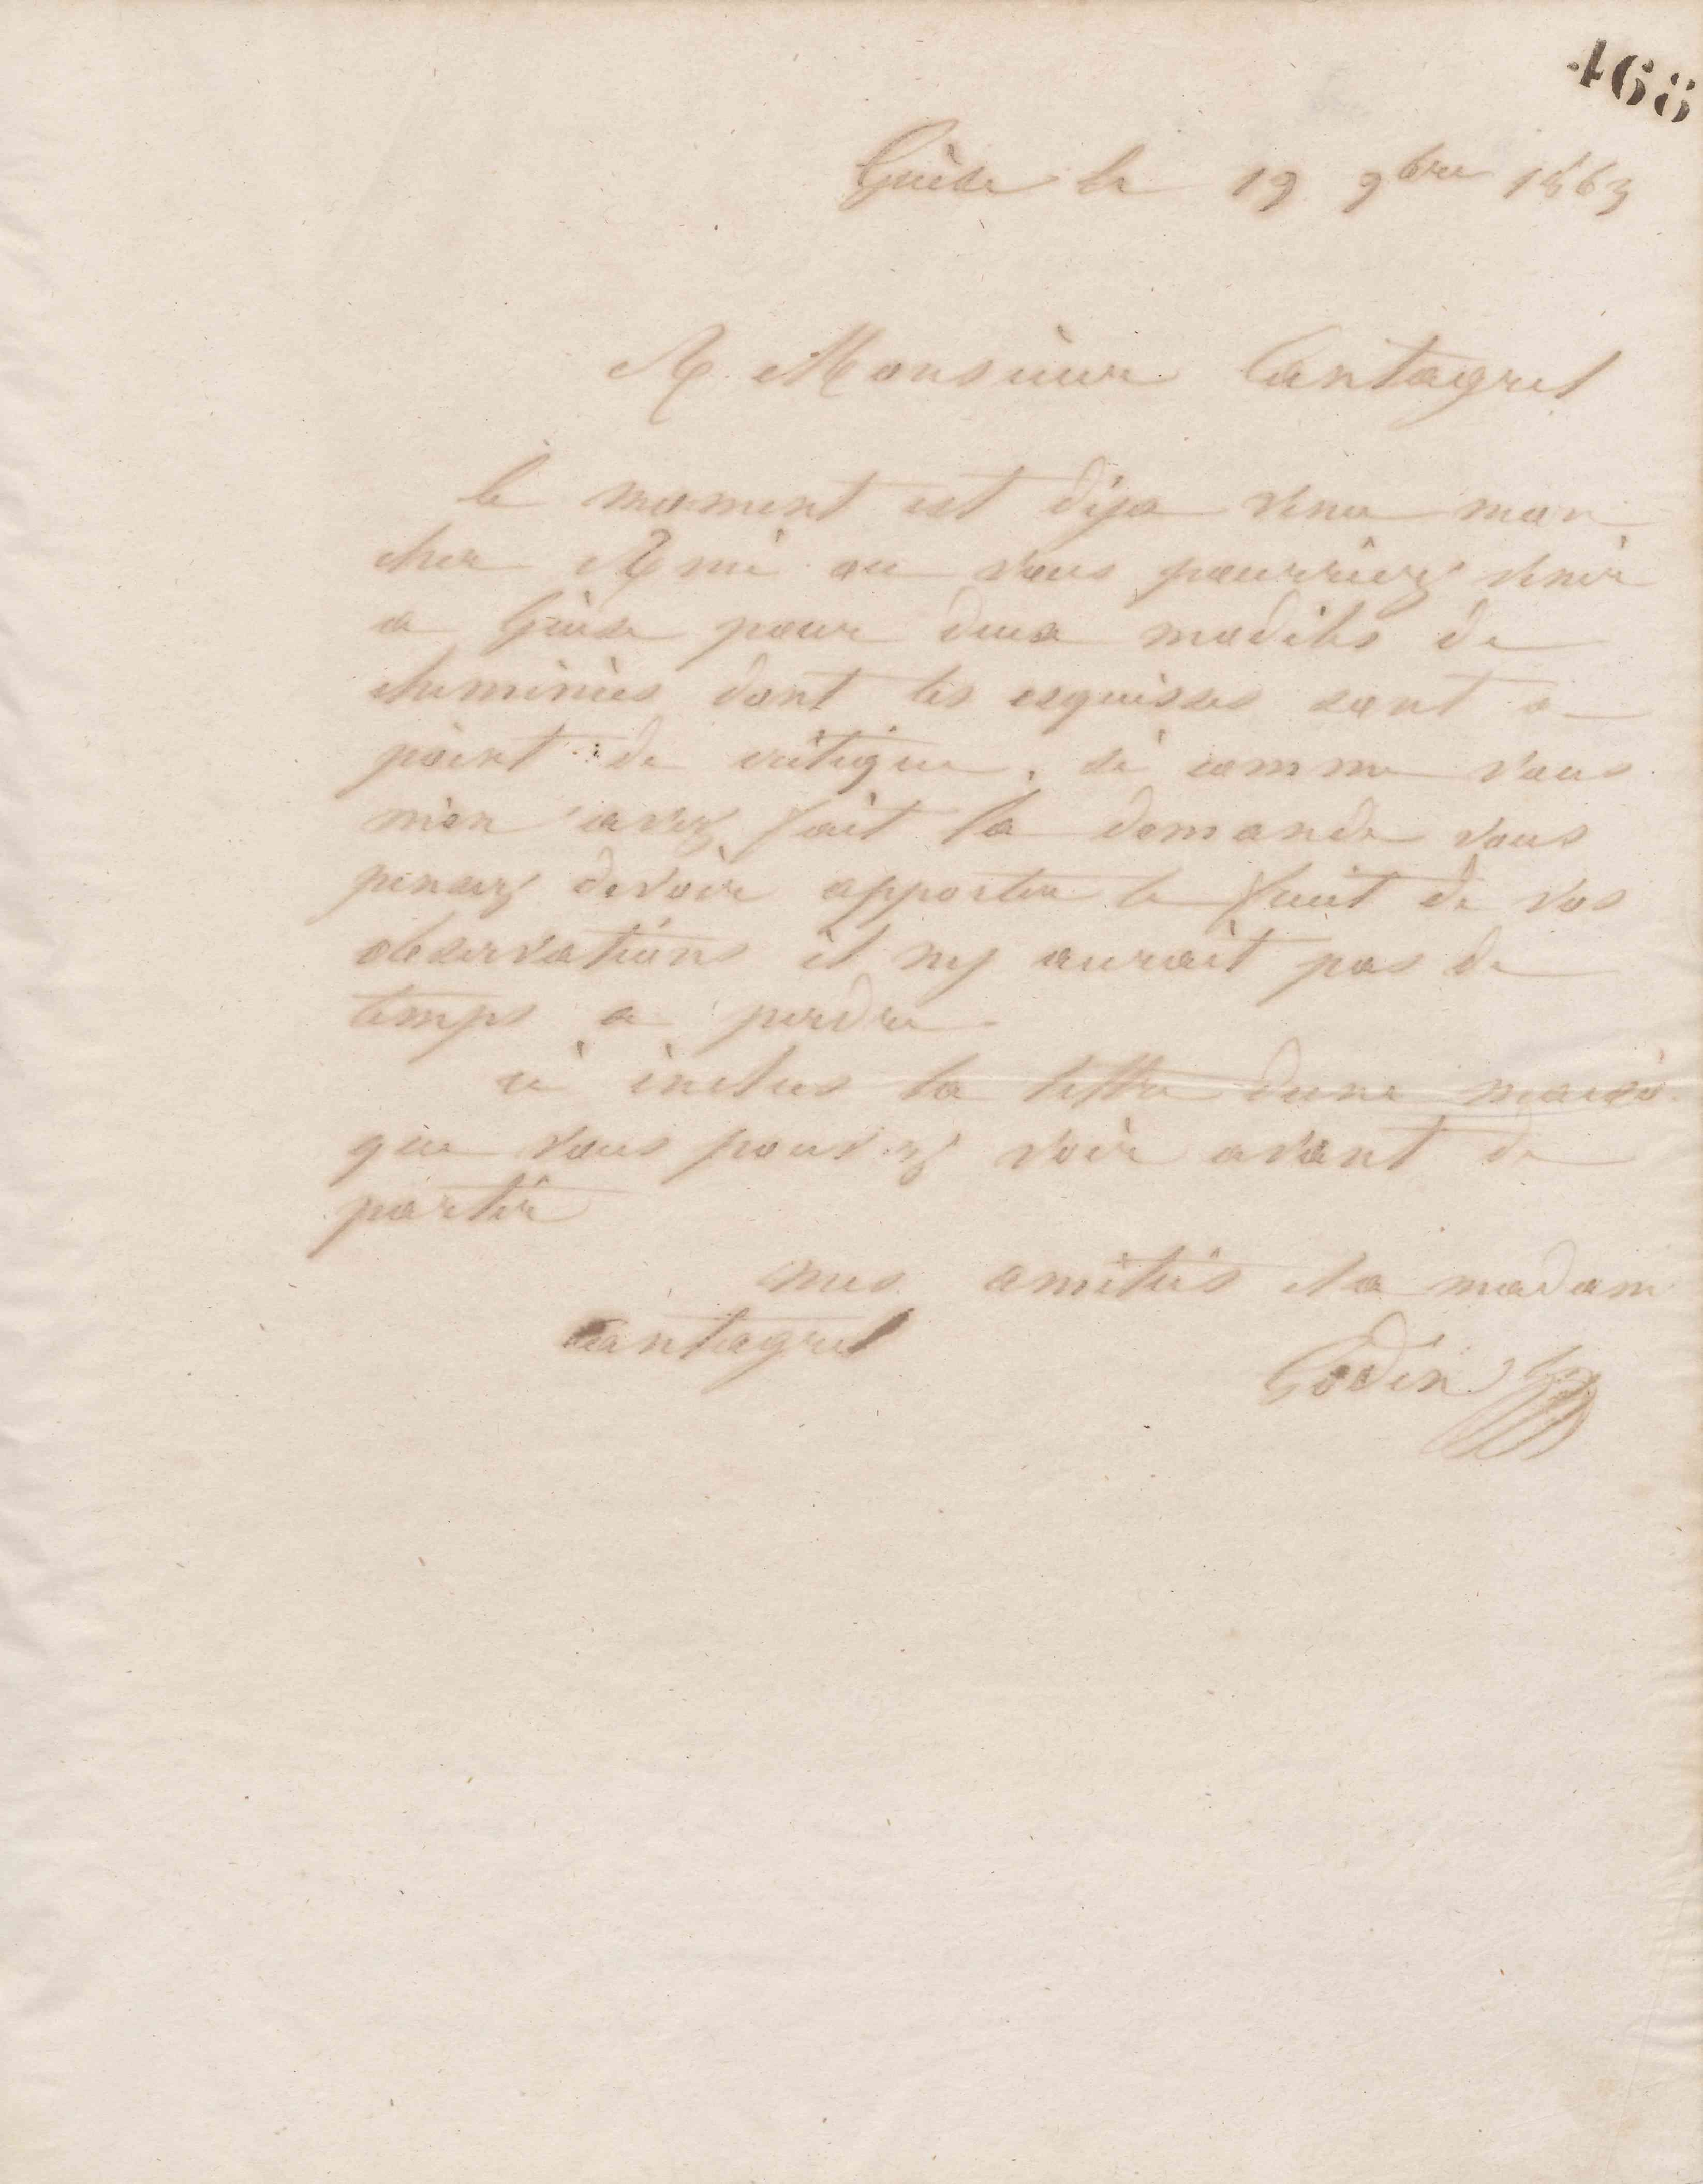 468
Guise le 19 9bre 1863
A Monsieur Cantagrel
le moment est déja venu mon
cher Ami ou vous pourriez venir
a Guise pour deux modèles de
cheminées dont les esquisses sont a
point de critique. si comme vous
m'en avez fait la demande vous
pensez devoir apporter le fruit de vos
observations il ny aurait pas de
temps a perdre
ci inclus la lettre dune maiso
que vous pouvez voir avant de
partir
mes amitiés et a madam
Cantagrel
Godin